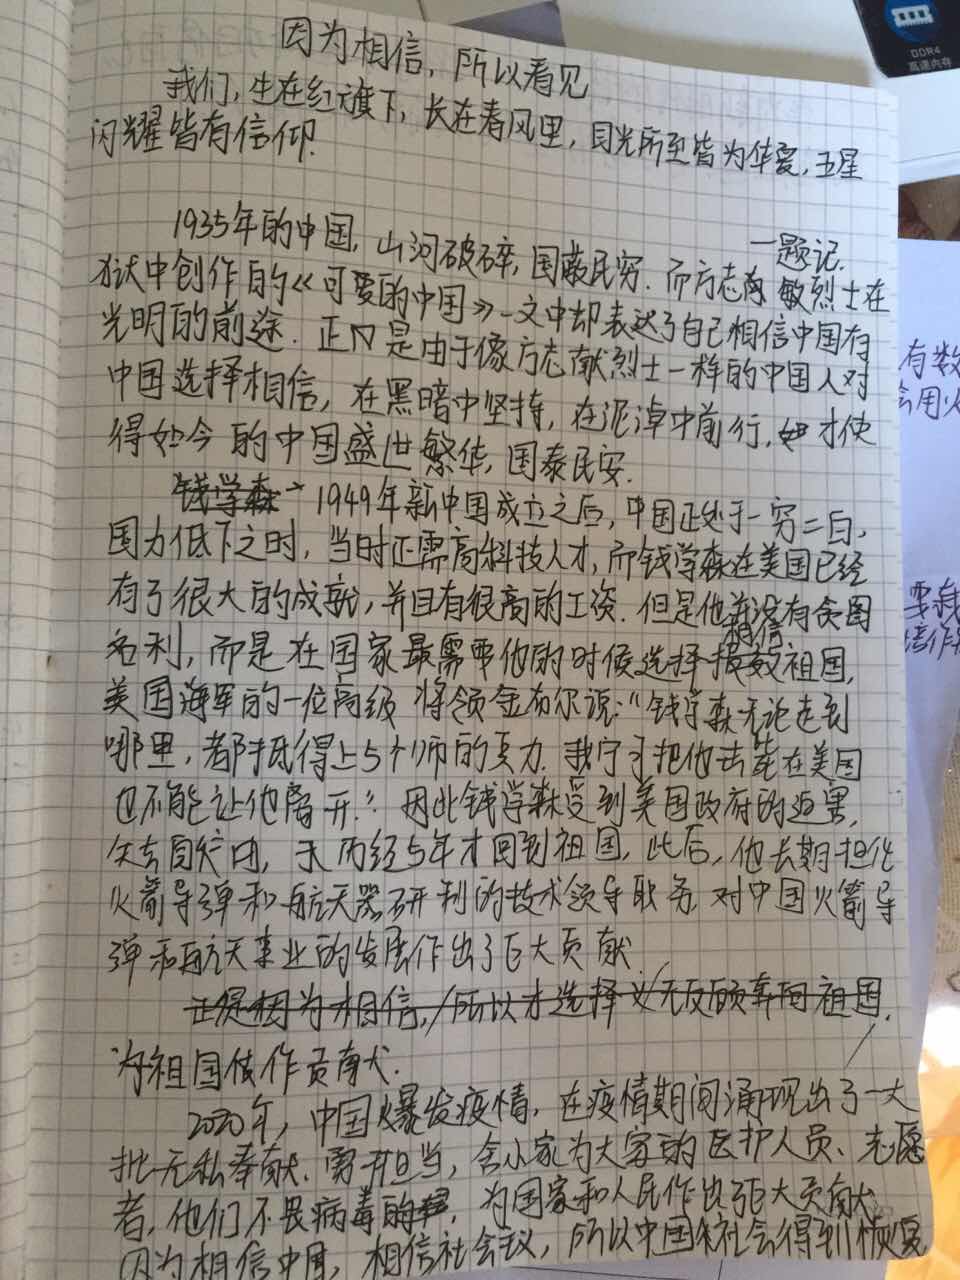 因为相信，所以看见
我们，生在红旗下，长在春风里，目光所至皆为华夏，五星
闪耀皆有信仰.
—题记.
1935年的中国，山河破碎，国蔽民穷.而方志敏烈士在
狱中创作的《可爱的中国》一文中却表达了自己相信中国有
光明的前途.正是由于像方志敏烈士一样的中国人对
中国选择相信，在黑暗中坚持，在泥淖中前行，才使
得如今的中国盛世繁华，国泰民安.
钱学森 1949年新中国成立之后，中国正处于一穷二白，
国力低下之时，当时正需高科技人才，而钱学森在美国已经
有了很大的成就，并且有很高的工资.但是他并没有贪图
名利，而是在国家最需要他的时候选择相信祖国，
美国海军的一位高级将领金布尔说："钱学森无论走到
哪里，都抵得上5个师的兵力.我宁可把他击毙在美国
也不能让他离开."因此钱学森受到美国政府的迫害，
失去自由，历经5年才回到祖国，此后，他长期担任
火箭导弹和航天器研制的技术领导职务.对中国火箭导
弹和航天事业的发展作出了巨大贡献.
正是因为相信，所以才选择义无反顾奔向祖国，
为祖国做作贡献.
2020年，中国爆发疫情，在疫情期间涌现出了一大
批无私奉献、勇于担当，舍小家为大家的医护人员、志愿
者，他们不畏病毒，为国家和人民作出巨大贡献
因为相信中国，相信社会主义，所以中国社会得到恢复
DDR4
高速内存
有数
会用